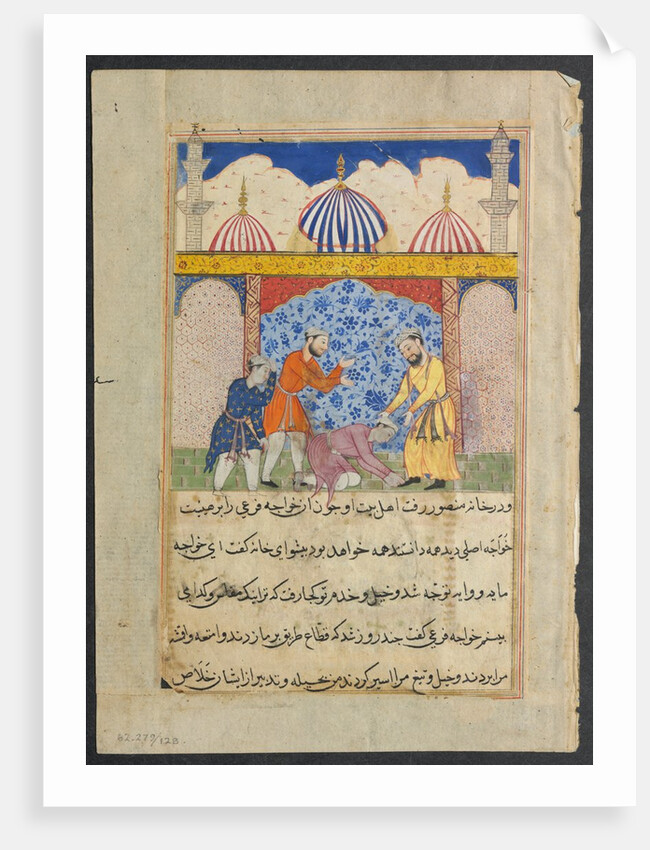 و در خانه منصور رفت اهل بیت او چون آن خواجه فرعی را بر صیت
خواجه اصلی دیدند همه دانستند همه خواهد بود پیشوای خانه گفت ای خواجه
مایه و چه شد و خیل و خدم تو کجا رفت که ترا یک مفلس و گدای
بینم خواجه فرعی گفت چند روز شد که قطاع طریق بر ما زدند و امتعه و اقشه
مرا بردند و خیل و تبع مرا اسیر کردند من بحیله و تدبیر از ایشان خلاص
62.279/12B.